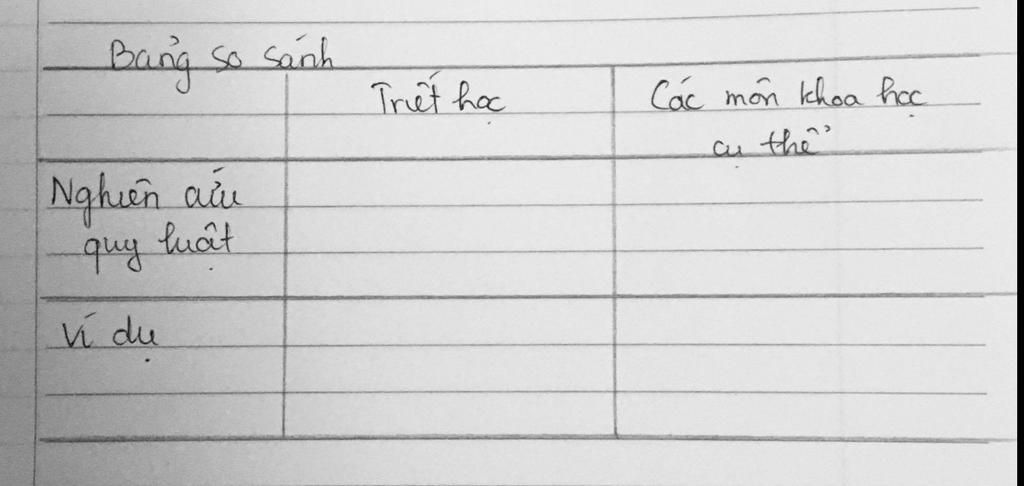 Bảng so sánh
Triết học
Các môn khoa học
cụ thể
Nghiên cứu
quy luật
Ví dụ